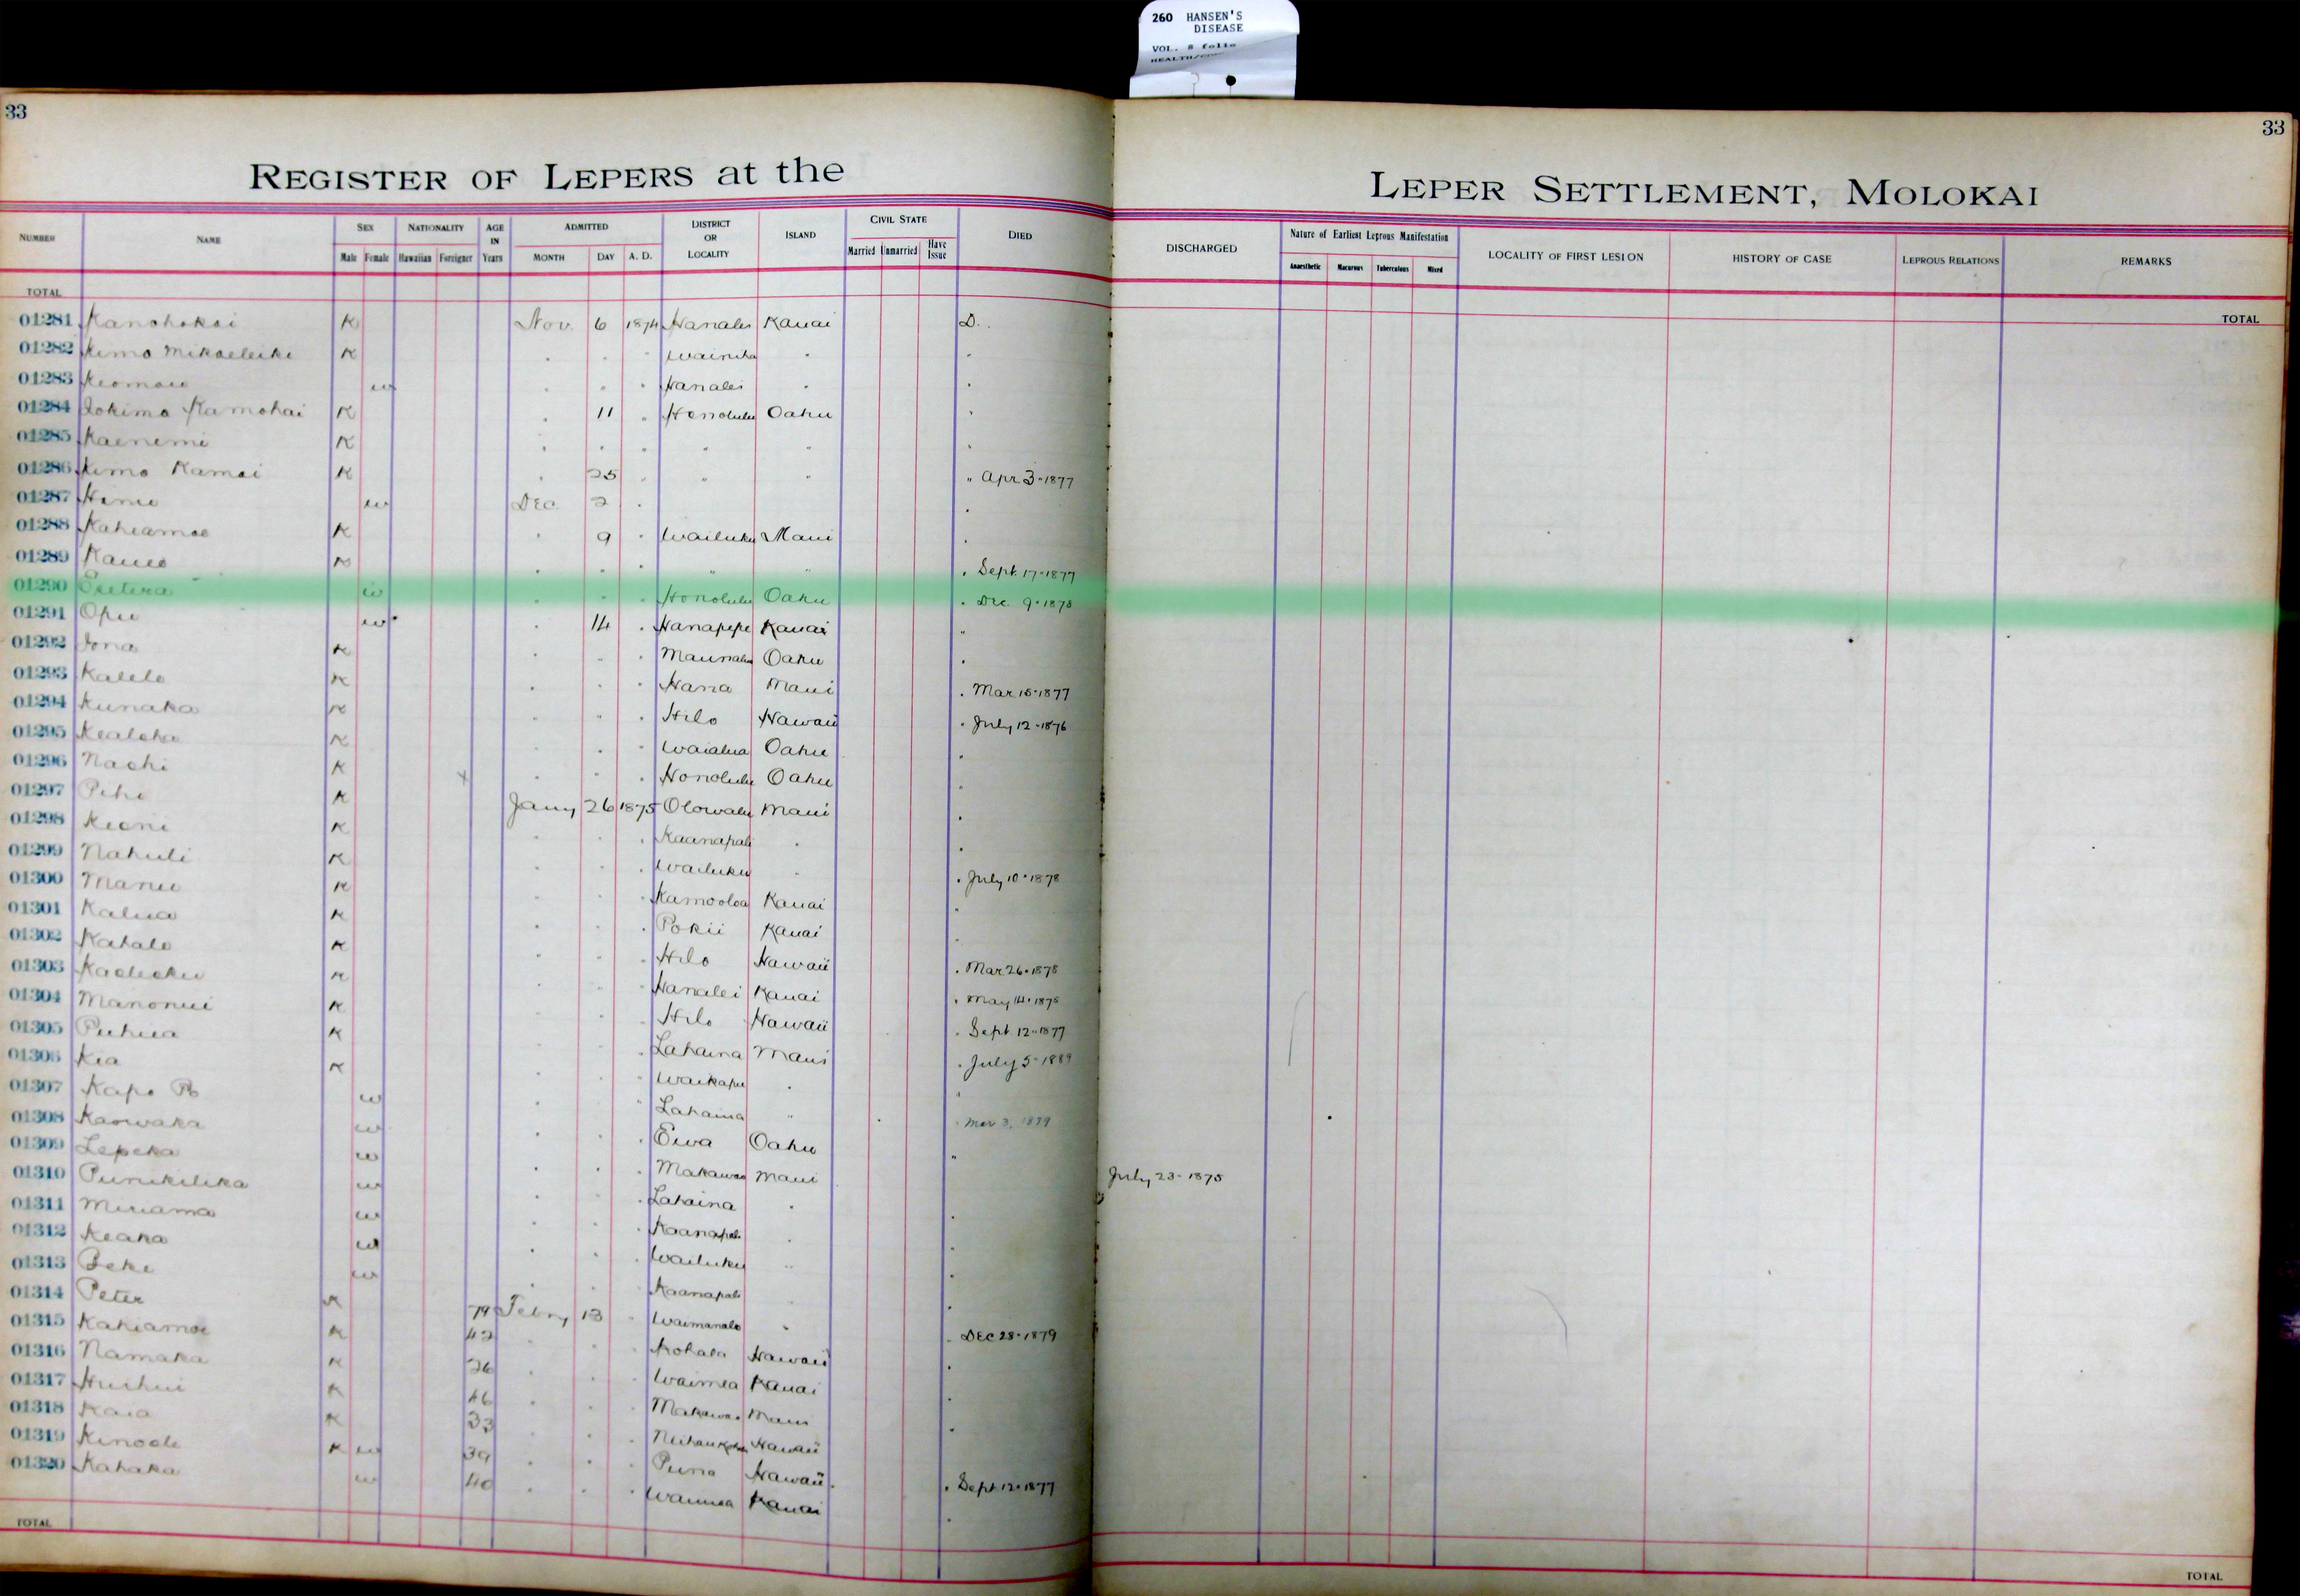 260 HANSEN'S
DISEASE
VOL. 8 folio
33
33
REGISTER OF LEPERS at the LEPER SETTLEMENT, MOLOKAI
NUMBER NAME SEX NATIONALITY AGE IN Years ADMITTED DISTRICT OR LOCALITY ISLAND CIVIL STATE DIED DISCHARGED Nature of Earliest Leprous Manifestation LOCALITY OF FIRST LESION HISTORY OF CASE LEPROUS RELATIONS REMARKS
Male Female Hawaiian Foreigner MONTH DAY A. D. Married Unmarried Have Issue Anaesthetic Macurous Tuberculous Mixed
TOTAL TOTAL
01281 Kanohokai K Nov. 6 1874 Hanalei Kauai D.
01282 Kimo Mikaeleiki K " " " Wainiha " "
01283 Keomaio w " " " Hanalei " "
01284 Iokimo Kamohai K " 11 " Honolulu Oahu "
01285 Kaenemi K " " " " " "
01286 Kimo Kamai K " 25 " " " " Apr 3-1877
01287 w Dec 2 " "
01288 Kahiamoe K " 9 " Wailuku Maui "
01289 Kaueo K " " " " " " Sept. 17-1877
01290 w " " " Honolulu Oahu " Dec 9-1878
01291 Opu w " 14 " Hanapepe Kauai "
01292 Iona K " " " Oahu "
01293 Kalelo K " " " Hana Maui " Mar 15-1877
01294 Kunaka K " " " Hilo Hawaii " July 12-1876
01295 Kealoha K " " " Waialua Oahu "
01296 Naohi K " " " Honolulu Oahu "
01297 Pihi K Jany 26 1875 Olowalu Maui "
01298 Keoni K " " " Kaanapali " "
01299 Nahuli K " " " Wailuku " " July 10-1878
01300 Manu K " " " Kamooloa Kauai "
01301 Kalua K " " " Pokii Kauai "
01302 Kahalo K " " " Hilo Hawaii " Mar 26-1878
01303 K " " " Hanalei Kauai " May 14-1875
01304 Manonui K " " " Hilo Hawaii " Sept 12-1877
01305 Puhua K " " " Lahaina Maui " July 5-1889
01306 Kia K " " " Waikapu " "
01307 Kapo w " " " Lahaina " " Mar 3, 1879
01308 Kaowaka w " " " Ewa Oahu "
01309 Lepeka w " " " Makawao Maui July 23-1875
01310 Punikilika w " " " Lahaina " "
01311 Miriama w " " " Kaanapali " "
01312 Keaka w " " " Wailuku " "
01313 Beke w " " " Kaanapali " "
01314 Peter K 79 Febry 13 " Waimanalo " " Dec 28-1879
01315 Kahiamoe K 42 " " " Kohala Hawaii "
01316 Namaka K 26 " " " Waimea Kauai "
01317 Huihui K 46 " " " Makawao Maui "
01318 Kaia K 33 " " " Hawaii
01319 Kinoole K w 39 " " " Puna Hawaii " Sept 12-1877
01320 Kahaka w 40 " " " Waimea Kauai "
TOTAL TOTAL